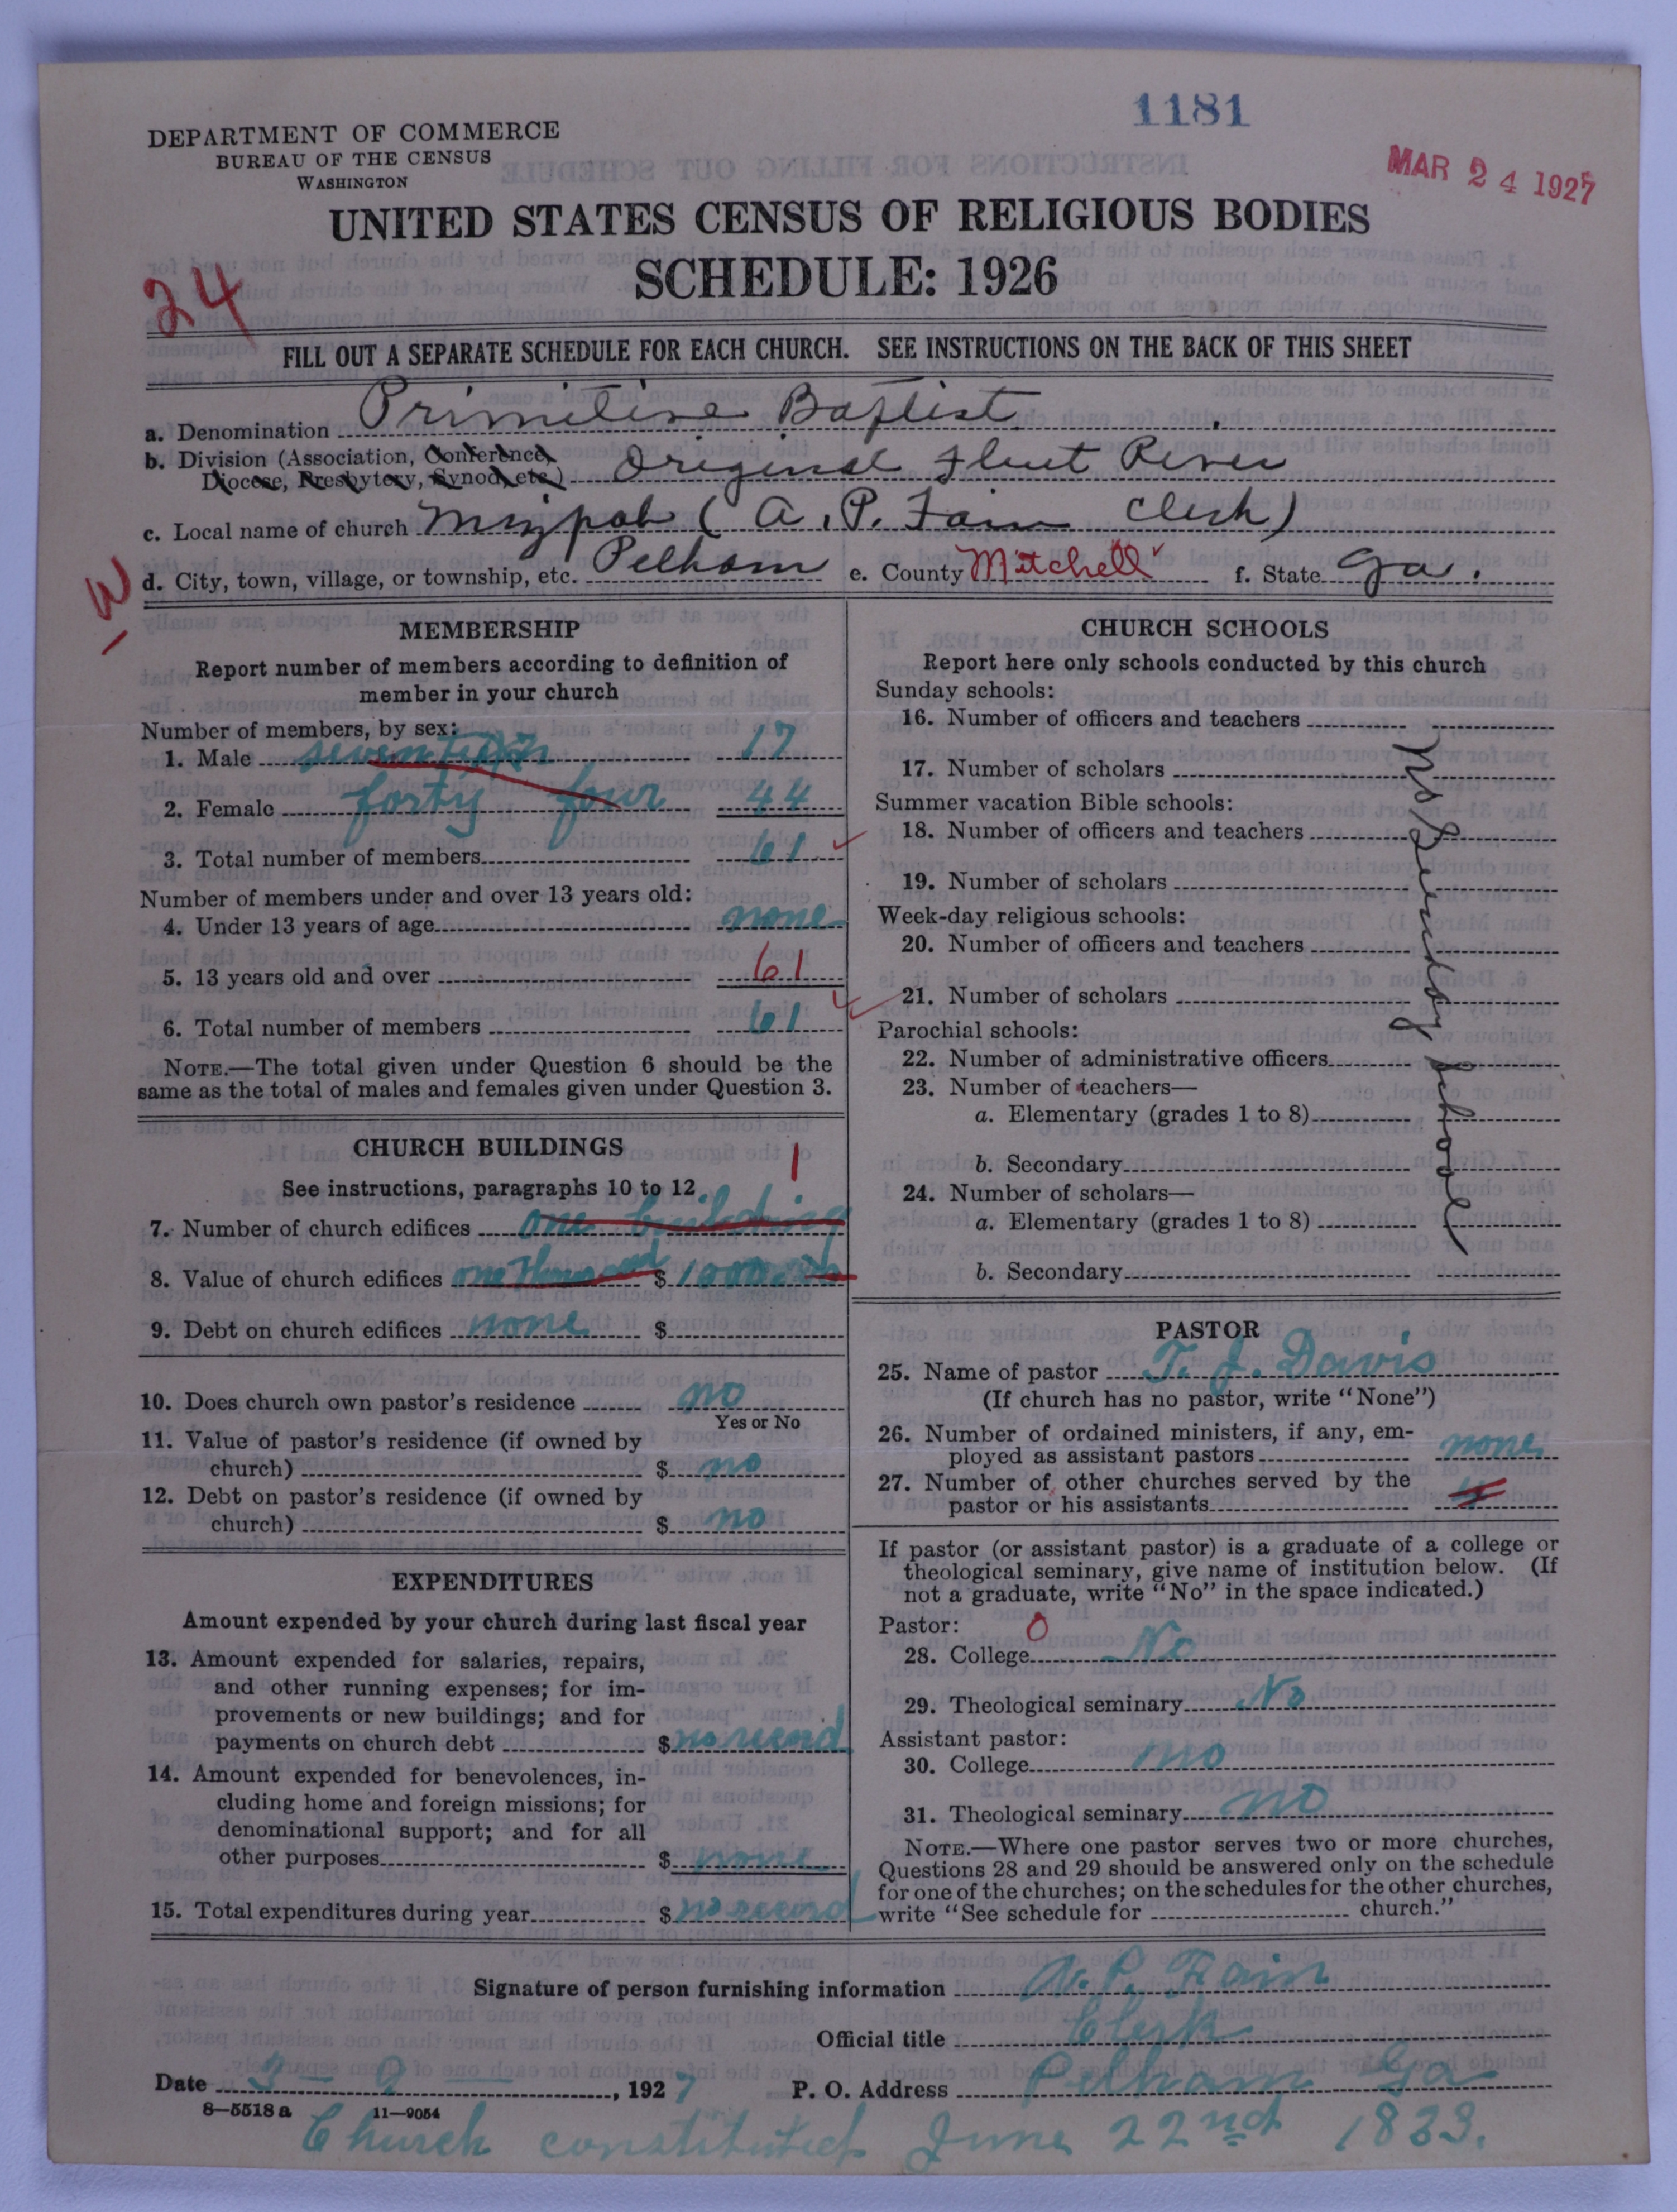 1181
DEPARTMENT OF COMMERCE
BUREAU OF THE CENSUS
WASHINGTON
MAR 24 1927
UNITED STATES CENSUS OF RELIGIOUS BODIES
SCHEDULE: 1926
24
FILL OUT A SEPARATE SCHEDULE FOR EACH CHURCH. SEE INSTRUCTIONS ON THE BACK OF THIS SHEET
a. Denomination Primitive Baptist
b. Division (Association, Conference, Diocese, Presbytery, Synod, etc.) Original Flint River
c. Local name of church Mizpah (A. P. Fain Clerk)
d. City, town, village, or township, etc. Pelham e. County Mitchell f. State Ga.
-W
MEMBERSHIP
Report number of members according to definition of
member in your church
Number of members, by sex:
1. Male seventeen 17
2. Female forty four 44
3. Total number of members 61
Number of members under and over 13 years old:
4. Under 13 years of age none
5. 13 years old and over 61
6. Total number of members 61
NOTE.—The total given under Question 6 should be the
same as the total of males and females given under Question 3.
CHURCH BUILDINGS
See instructions, paragraphs 10 to 12
1
7. Number of church edifices one building
8. Value of church edifices one thousand $ 1000
9. Debt on church edifices none $
10. Does church own pastor's residence no
Yes or No
11. Value of pastor's residence (if owned by
church) $ no
12. Debt on pastor's residence (if owned by
church) $ no
EXPENDITURES
Amount expended by your church during last fiscal year
13. Amount expended for salaries, repairs,
and other running expenses; for im-
provements or new buildings; and for
payments on church debt $ no record
14. Amount expended for benevolences, in-
cluding home and foreign missions; for
denominational support; and for all
other purposes $ none
15. Total expenditures during year $ no record
CHURCH SCHOOLS
Report here only schools conducted by this church
Sunday schools:
16. Number of officers and teachers
17. Number of scholars
Summer vacation Bible schools:
18. Number of officers and teachers
19. Number of scholars
Week-day religious schools:
20. Number of officers and teachers
21. Number of scholars
Parochial schools:
22. Number of administrative officers
23. Number of teachers—
a. Elementary (grades 1 to 8)
b. Secondary
24. Number of scholars—
a. Elementary (grades 1 to 8)
b. Secondary
No Sunday School
PASTOR
25. Name of pastor T. J. Davis
(If church has no pastor, write "None")
26. Number of ordained ministers, if any, em-
ployed as assistant pastors none
27. Number of other churches served by the
pastor or his assistants
If pastor (or assistant pastor) is a graduate of a college or
theological seminary, give name of institution below. (If
not a graduate, write "No" in the space indicated.)
Pastor: 0
28. College No
29. Theological seminary No
Assistant pastor:
30. College no
31. Theological seminary no
NOTE.—Where one pastor serves two or more churches,
Questions 28 and 29 should be answered only on the schedule
for one of the churches; on the schedules for the other churches,
write "See schedule for church."
Signature of person furnishing information A. P. Fain
Official title Clerk
Date 3 - 9 -, 1927 P. O. Address Pelham Ga
8—5518 a 11—9054
Church constituted June 22nd 1833.